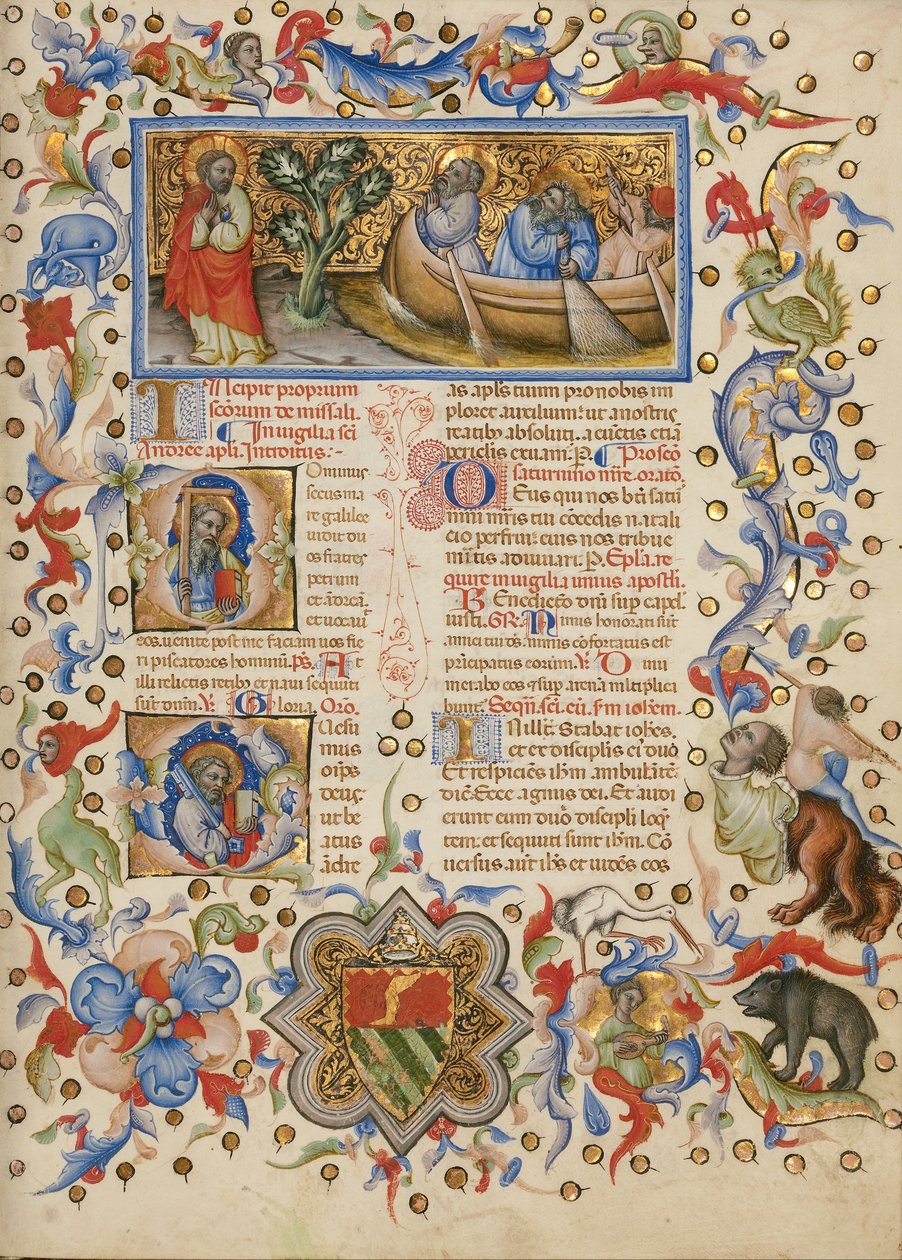 INcipit proprium
scōrum de missali.
In uigilia sci
Andree apli. Introitus:-
Dominus
secus ma
re galilee
uidit du
os fratres
petrum
et andreā
et uocauit
eos. uenite post me faciam uos fie
ri piscatores hominū. ps. At
illi relictis retibꝫ et naui sequuti
sūt dūm. V̇ Gloria. Oro.
Quesu
mus
oīps
deus.
ut be
atus
ādre
as apls tuum pro nobis im
ploret auxilium: ut a nostris
reatibꝫ absoluti. a cūctis etiā
periclis exuam. P. Pro scō
saturnino mr̄e. oratō.
Deus qui nos bt̄i satu
nini mr̄is tui cōcedis natali
cio perfrui: eius nos tribue
mītis adiuuari. P. Epl̄a re
quire in uigilia unius apostli.
Benedictō dn̄i sup capd
iusti. GR. Nimis honorati sūt
amici tui ds̄. nimis cōfortatus est
prīcipatus eorum. V̇ Dinu
merabo eos et sup arenā mltiplica
bunt. Sequn̄. sci. eu. fm̄ iohem.
IN illo t̄. Stabat ioh̄es.
et ex discipl̄is ei duo
Et respiciēs ihm ambulātē.
dic̄. Ecce agnus dei. Et audi
erunt eum duō discipli loq̄
tem: et sequuti sunt ihm. Cō
uersus aūt ihs et uidēs eos